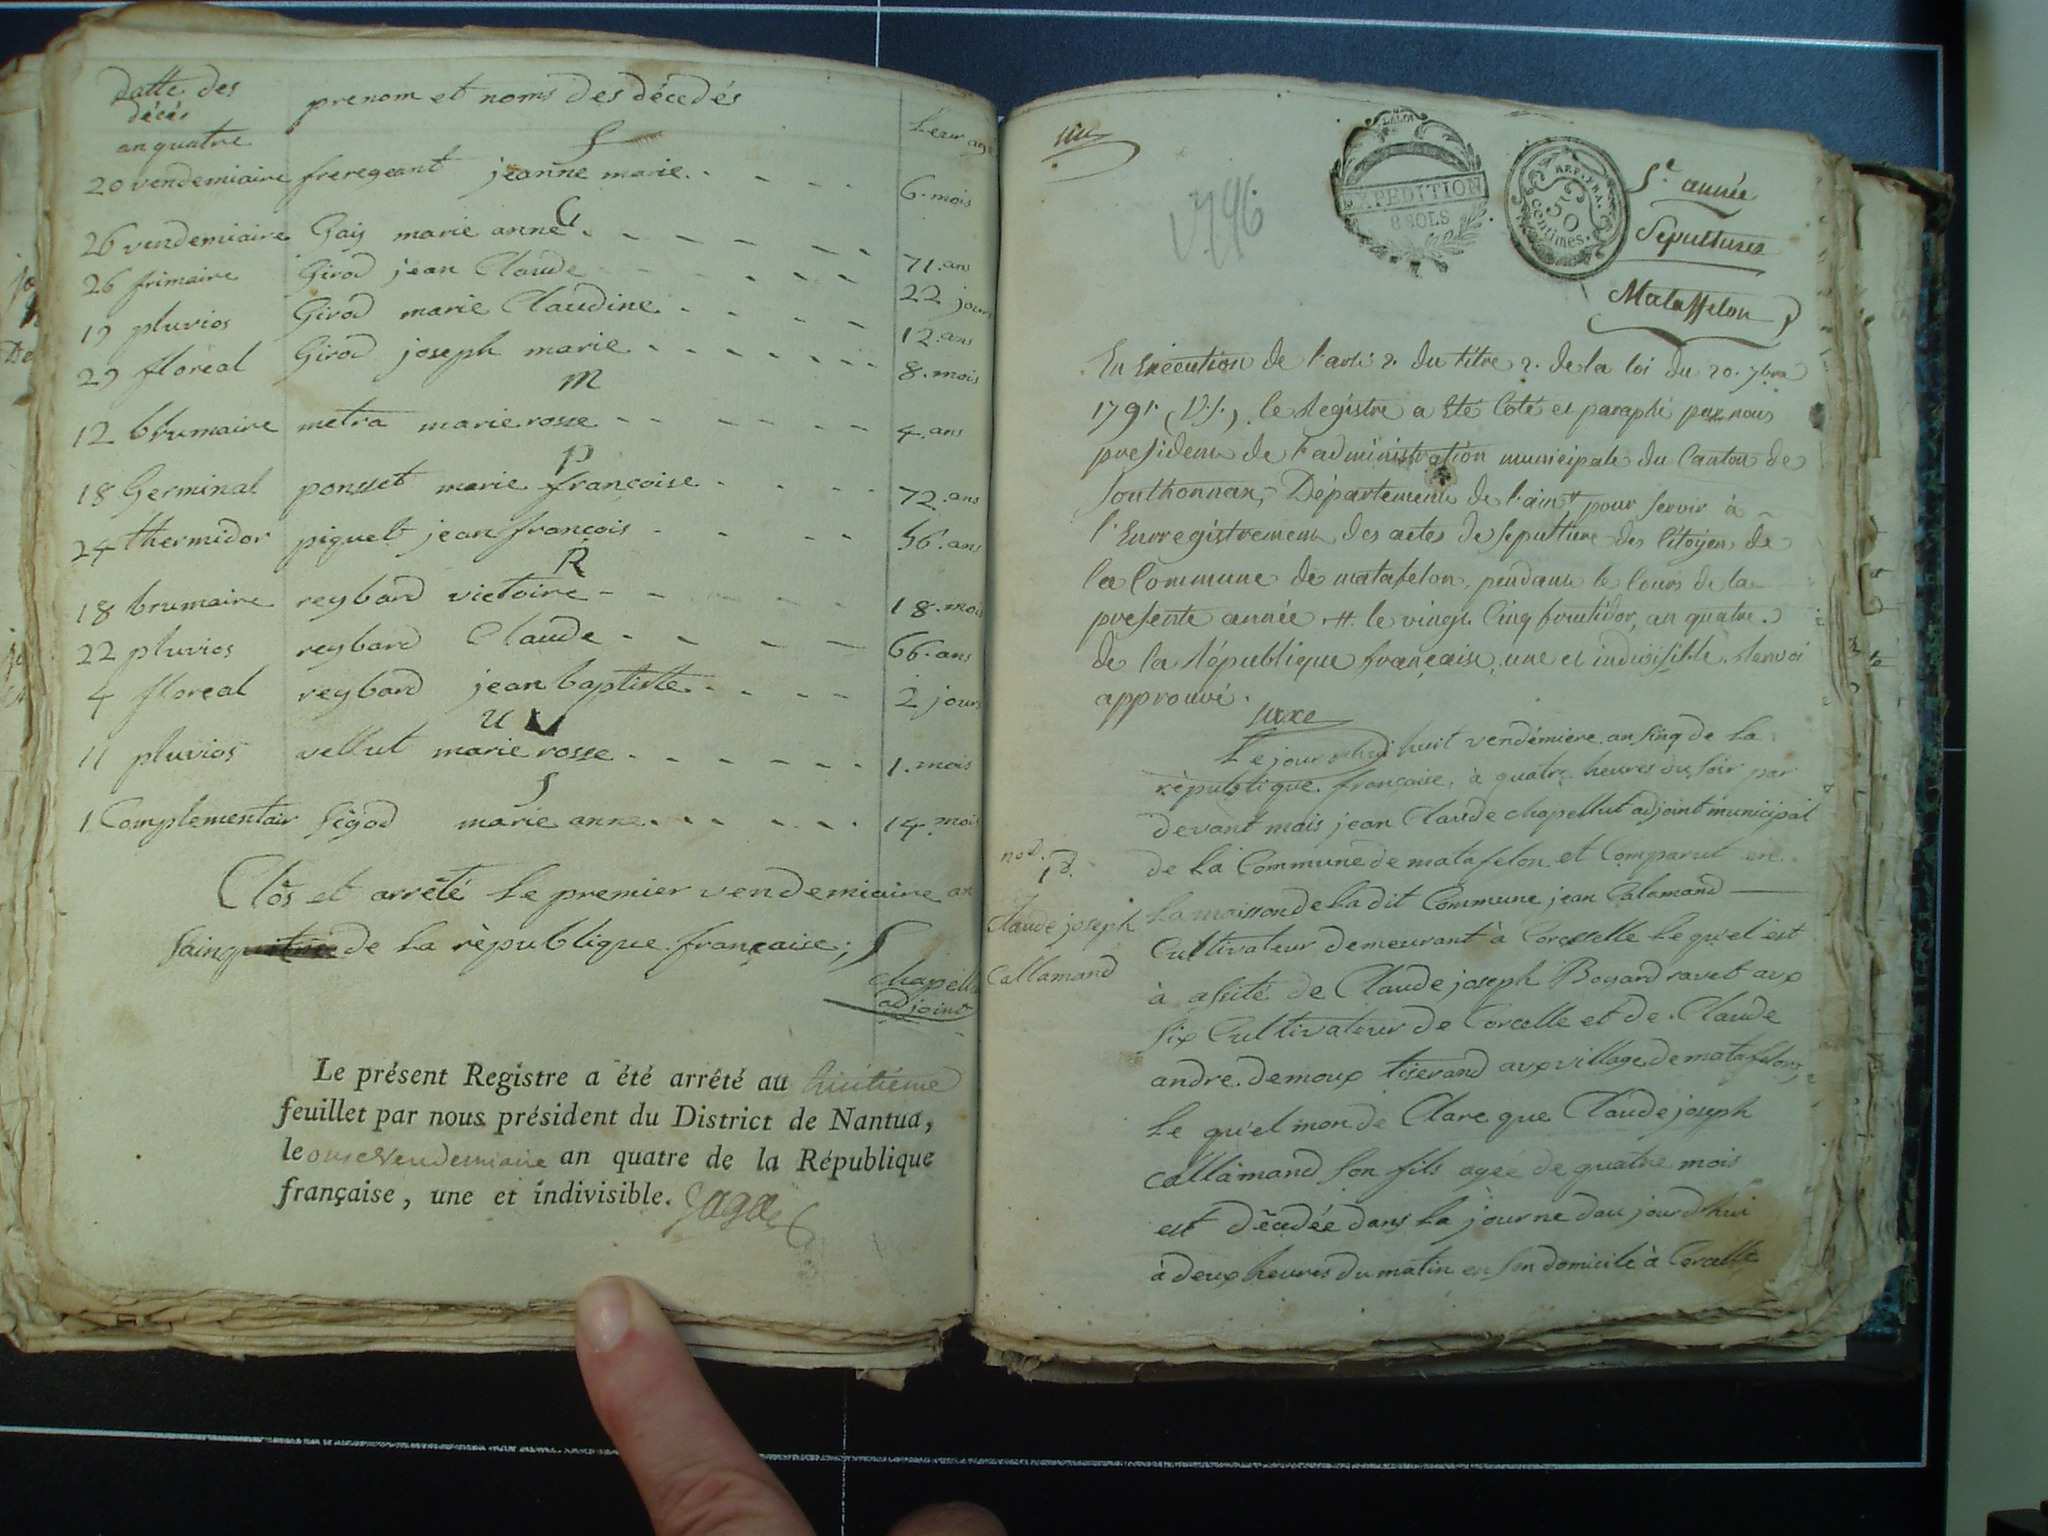 datte des
décés
an quatre
prenom et noms des décedés
Leur age
f
20 vendemiaire freregeant jeanne marie. 6. mois
G
26 vendemiaire Gay marie anne 71. ans
26 frimaire Girod jean Claude 22 jours
19 pluvios Girod marie Claudine. 12. ans
29 floréal Girod joseph marie. 8. mois
m
12 brumaire metra marie rosse 4. ans
P
18 Germinal ponsset marie francoise 72. ans
24 thermidor piquet jean francois 56. ans
R
18 brumaire reybard victoire 18. mois
22 pluvios reybard Claude 66. ans
4 floreal reybard jean baptiste 2 jours
u
11 pluvios vellut marie rosse 1. mois
S
1 Complementair Sigod marie anne 14 mois
Clos et arrêté le premier vendemiaire an
sainq de la rèpublique française;
chapellu
adjoint
Le présent Registre a été arrêté au huitième
feuillet par nous président du District de Nantua,
le onse Vendemiaire an quatre de la République
française, une et indivisible.
1796.
LA LOI
EXPEDITION
8 SOLS
REP. FRA.
50
Centimes.
5e. année
Sépultures
Mataffelon
En Exécution de l'arti 2. du titre 2. de la loi du 20. 7bre
1791. (V.S.), le Registre a été Coté et paraphé par nous
president de l'administration municipale du Canton de
Sonthonnax, Département de l'ain, pour servir à
l'Enregistrement des actes de sepulture des Citoyens de
la Commune de matafelon, pendant le Cours de la
presente année. le vingt Cinq fructidor, an quatre.
de la République française, une et indivisible. Renvoi
approuvé.
Le jourdhui huit vendémiere an sinq de la
rèpublique française, à quatre heures du soir par
devant mois jean Claude chapellut adjoint municipal
de la Commune de matafelon et Comparut en
la maisson de la dit Commune jean Calamand
Cultivateur demeurant à Corcelle le qu'el est
à assité de Claude joseph Bogand ravet aux
six Cultivateur de Corcelle et de Claude
andre demoux tiserand aux village de matafelon,
le qu'el mon de Clare que Claude joseph
callamand son fils agée de quatre mois
est dêcedée dans la journe dau jourdhui
à deux heures du matin en son domicile à Corcelle
no. 1er.
Claude joseph
Callamand